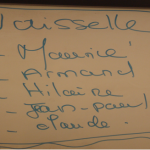 Vaisselle
- Maurice
- Armand
- Hilaire
- Jean-paul
- claude.